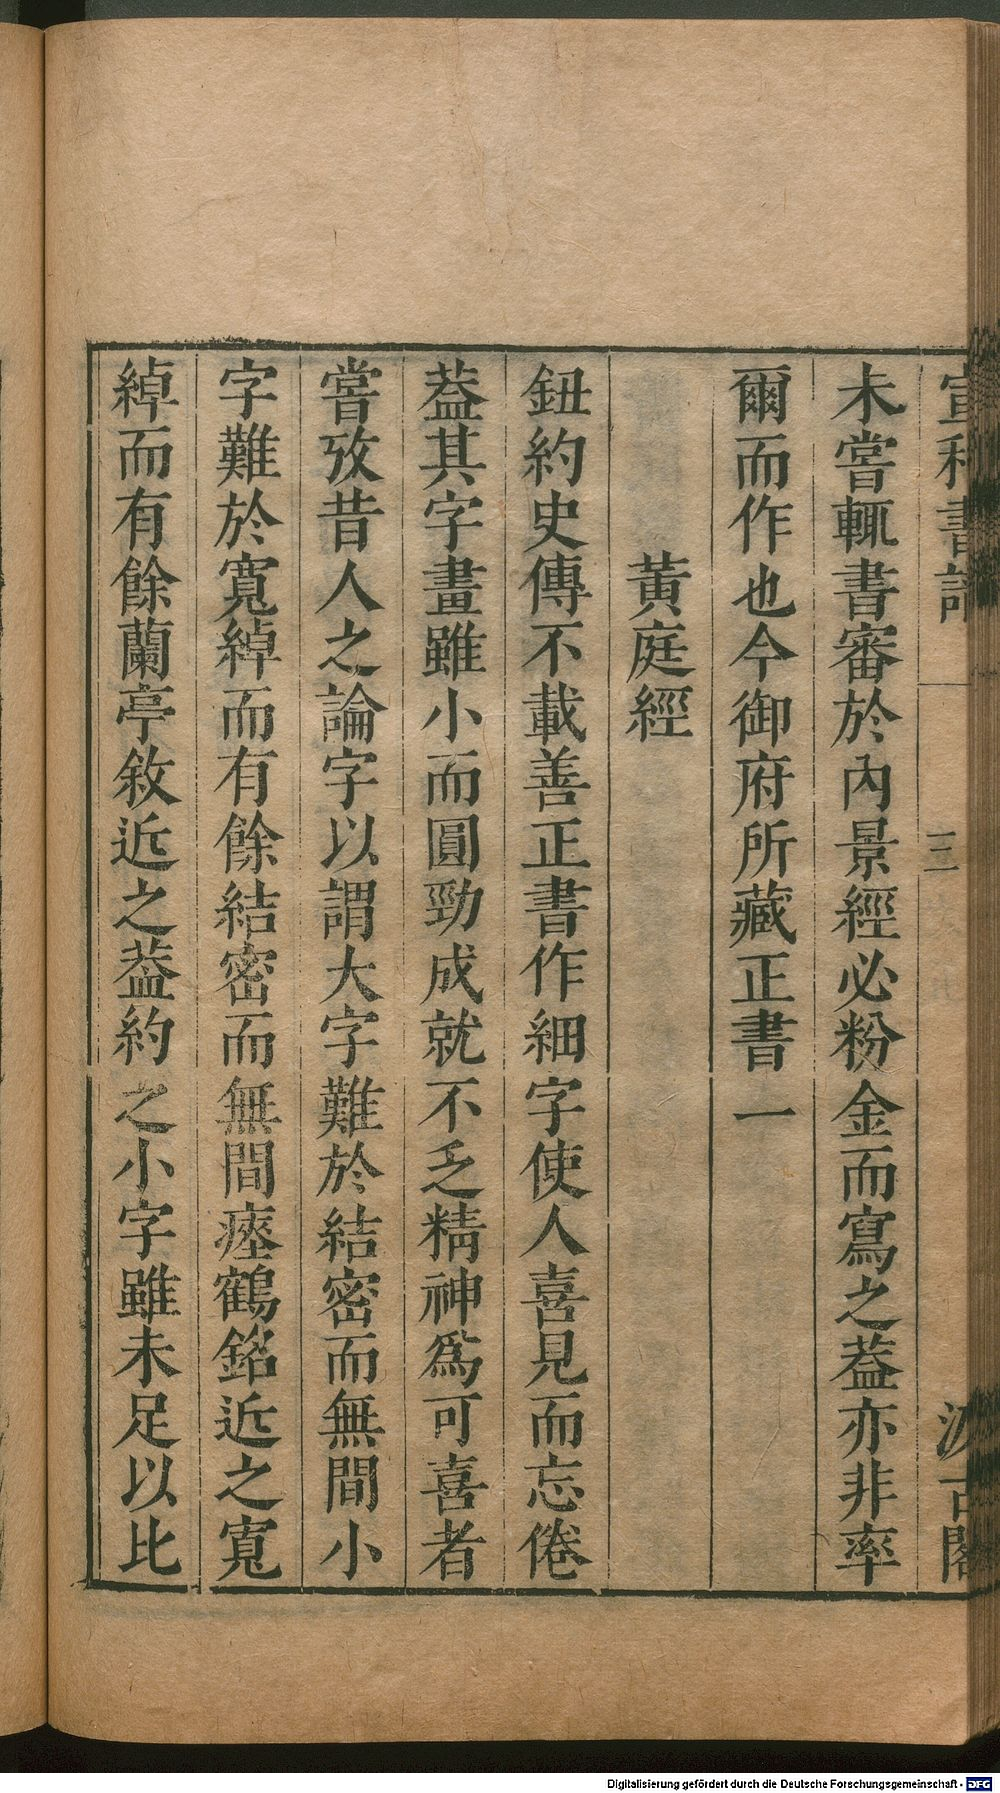 宣和書譜 三 汲古閣
未嘗輒書審於內景經必粉金而寫之葢亦非率
爾而作也今御府所藏正書一
黃庭經
鈕約史傳不載善正書作細字使人喜見而忘倦
葢其字畫雖小而圓勁成就不乏精神爲可喜者
嘗攷昔人之論字以謂大字難於結密而無間小
字難於寬綽而有餘結密而無間瘞鶴銘近之寬
綽而有餘蘭亭敘近之葢約之小字雖未足以比
Digitalisierung gefördert durch die Deutsche Forschungsgemeinschaft - DFG